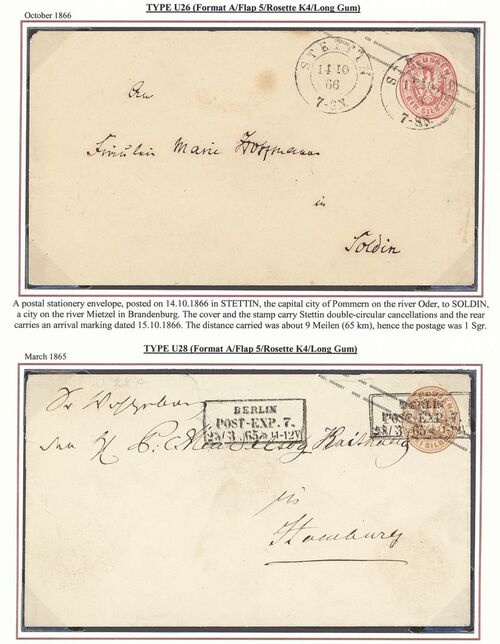 TYPE U26 (Format A/Flap 5/Rosette K4/Long Gum)
October 1866
STETTIN
14 10
66
7-8N.
PREUSSEN
EIN SILB.GR.
7-8N.
An
Fräulein Marie Hoffmann
in
Soldin
A postal stationery envelope, posted on 14.10.1866 in STETTIN, the capital city of Pommern on the river Oder, to SOLDIN,
a city on the river Mietzel in Brandenburg. The cover and the stamp carry Stettin double-circular cancellations and the rear
carries an arrival marking dated 15.10.1866. The distance carried was about 9 Meilen (65 km), hence the postage was 1 Sgr.
TYPE U28 (Format A/Flap 5/Rosette K4/Long Gum)
March 1865
BERLIN
POST-EXP. 7.
11-12V
BERLIN
POST-EXP.
Hamburg